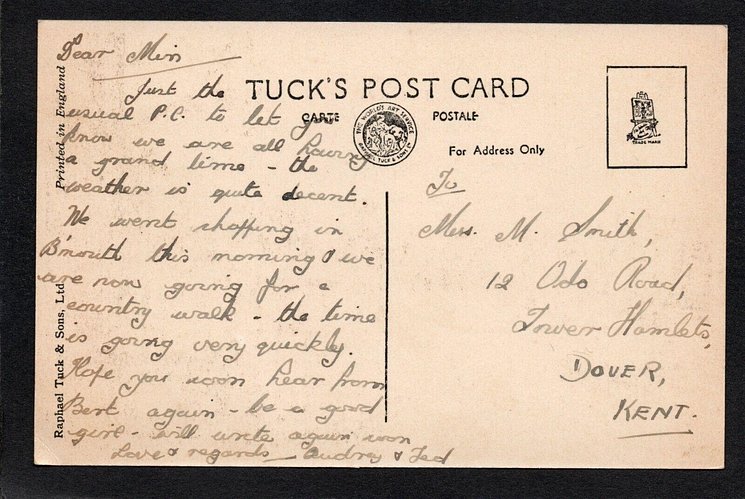 Dear Min
Just the
usual P.C. to let you
know we are all having
a grand time - the
weather is quite decent.
We went shopping in
B'mouth this morning & we
are now going for a
country walk - the time
is going very quickly.
Hope you soon hear from
Bert again - be a good
girl - will write again soon
Love & regards - Audrey & Ted
Printed in England
Raphael Tuck & Sons, Ltd.
TUCK'S POST CARD
CARTE POSTALE
THE WORLD'S ART SERVICE
RAPHAEL TUCK & SONS LD
For Address Only
TRADE MARK
To
Mrs. M. Smith,
12 Odo Road,
Tower Hamlets,
DOVER,
KENT.